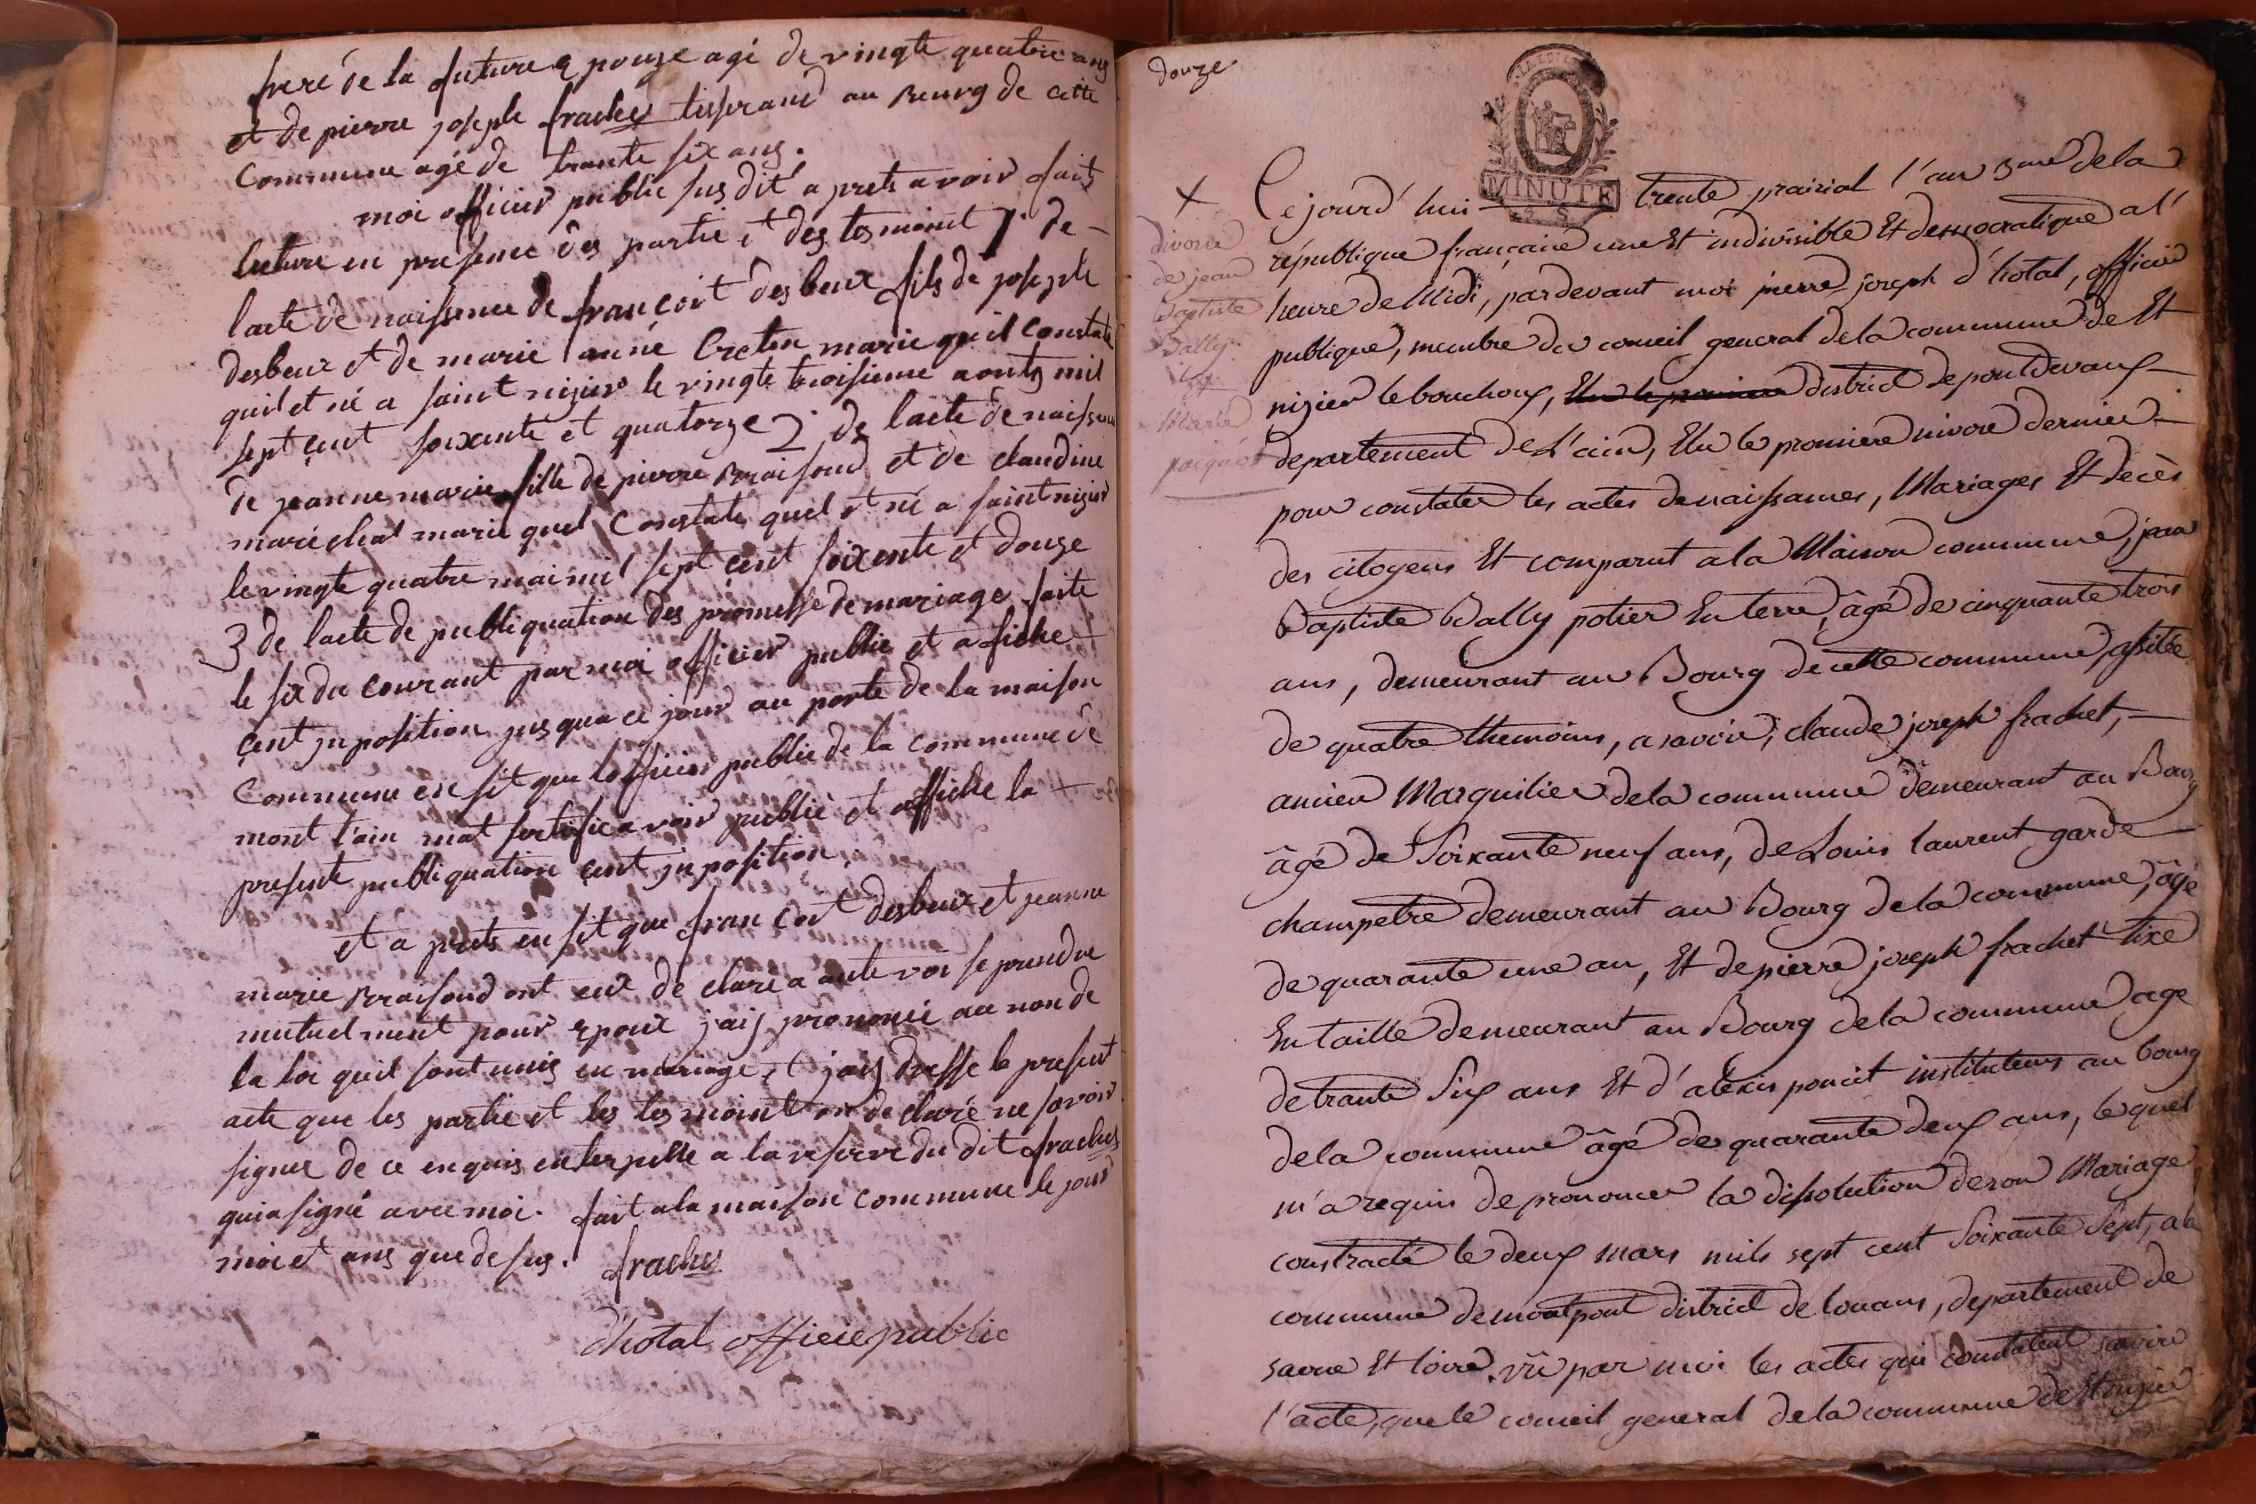 frere de la future epouze agé de vingte quatre ans
et de pierre joseph frachet tisserand au Bourg de cette
commune agé de trante six ans.
moi officier public sus dit a prets avoir fait
lecture en presence des partie et des tesmoint 1° de
lacte de naissence de françoit desbeux fils de joseph
desbeux et de marie anne Cretin marie qu'il constate
quil et né a saint nizier le vingte troisieme aonts mil
sept cent soixente et quatorze 2° de lacte de naissence
de jeanne marie fille de pierre Braisoud et de claudine
maréchal marie quel constate quel et né a saint nizier
le vingte quatre mai mil sept cent soixente et douze
3 de lacte de publiquation des promesse de mariage faite
le six du courant par moi officier public et afiche
cent jnposition jusqua ce jour au porte de la maison
commune en sit que lofficier public de la commune de
mont l'ain mat sertifie avoir publié et affiche la
presente publiquation cent jnposition.
et a prets en sit que françoit desbeux et jeanne
marie Braisoud ont eux de claré a aute voix se prendre
mutuelment pour epoux jaij prononcé au non de
la loi quil sont unis en mariage et jaij dresse le present
acte que les partie et les tesmoint on de claré ne savoir
signer de ce enquis enterpelle a la reserve du dit frachet
qui a signé avec moi. fait a la maison commune le jour
moi et ans que de sus. frachet
dhotal officie public
douze
MINUTE
Cejourd'hui trente prairial l'an 3me de la
république française une Et indivisible Et democratique a l'
heure de Midi, pardevant moi pierre joseph d'hotal, officier
publique, membre du conseil general de la commune de St
nizier le bouchoux, district de pontdevaux
departement de L'ain, Elu le premiere nivose dernier
pour constater les actes de naissances, Mariages Et décès
des citoyens Et comparut a la Maison commune, jean
Baptiste Bally potier En terre, âgé de cinquante trois
ans, demeurant au Bourg de cette commune, assistée
de quatre themoins, a savoir, claude joseph frachet,
ancien Marguilier de la commune demeurant au Bourg
âgé de Soixante neuf ans, de Louis laurent garde
champetre demeurant au Bourg de la commune, âgé
de quarante une an, Et de pierre joseph frachet tixe
En taille demeurant au Bourg de la commune age
de trante Six ans Et d'alexis poncit instituteur au bourg
de la commune âgé de quarante deux ans, lequel
m'a requis de prononcer la dissolution de son Mariage
contracté le deux mars mils sept cent Soixante Sept, a la
commune de montpont district de louans, departement de
saone Et loire. vû par moi les actes qui constatent savoir
l'acte, que le conseil general de la commune de St nizier
divorce
de jean
Baptiste
Bally
Et
Marie